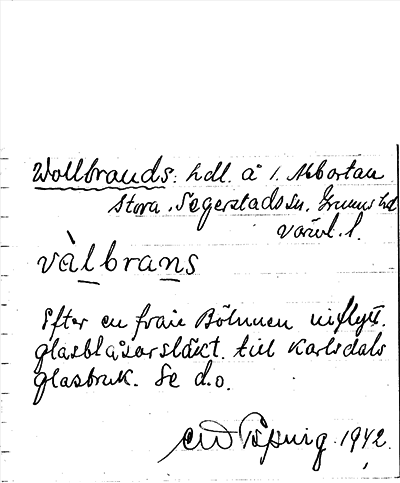 Wollbrands: hdl. å 1. Abborta
Stora Segerstads sn. Grums hd
Värml. l.
vàlbrans
Efter en från Böhmen inflytt.
glasblåsarsläkt till Karlsdals
glasbruk. Se d.o.
1942.